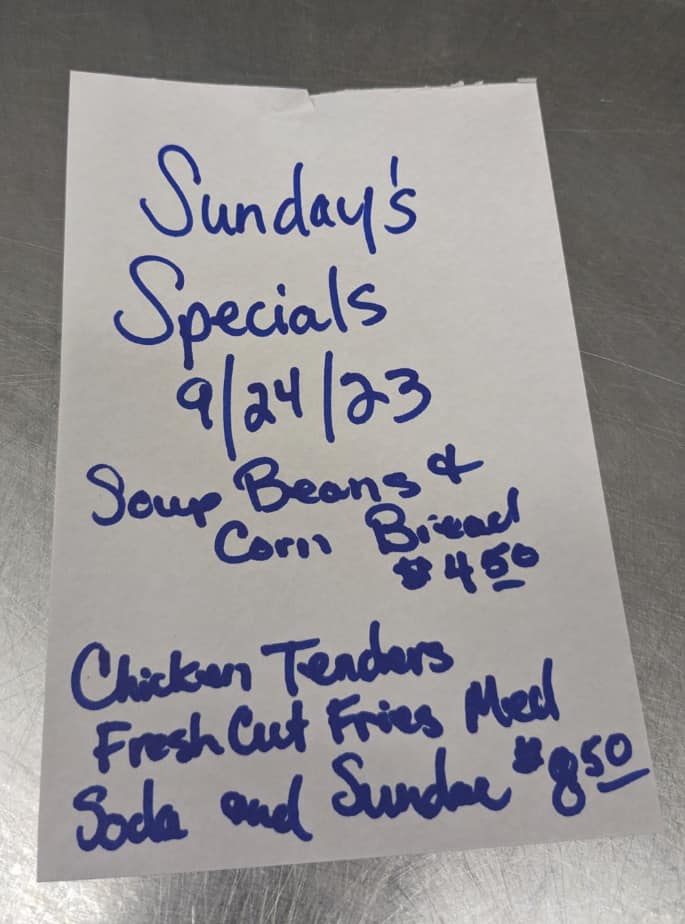 Sunday's
Specials
9/24/23
Soup Beans &
Corn Bread
$4.50
Chicken Tenders
Fresh Cut Fries Med
Soda and Sundae $8.50